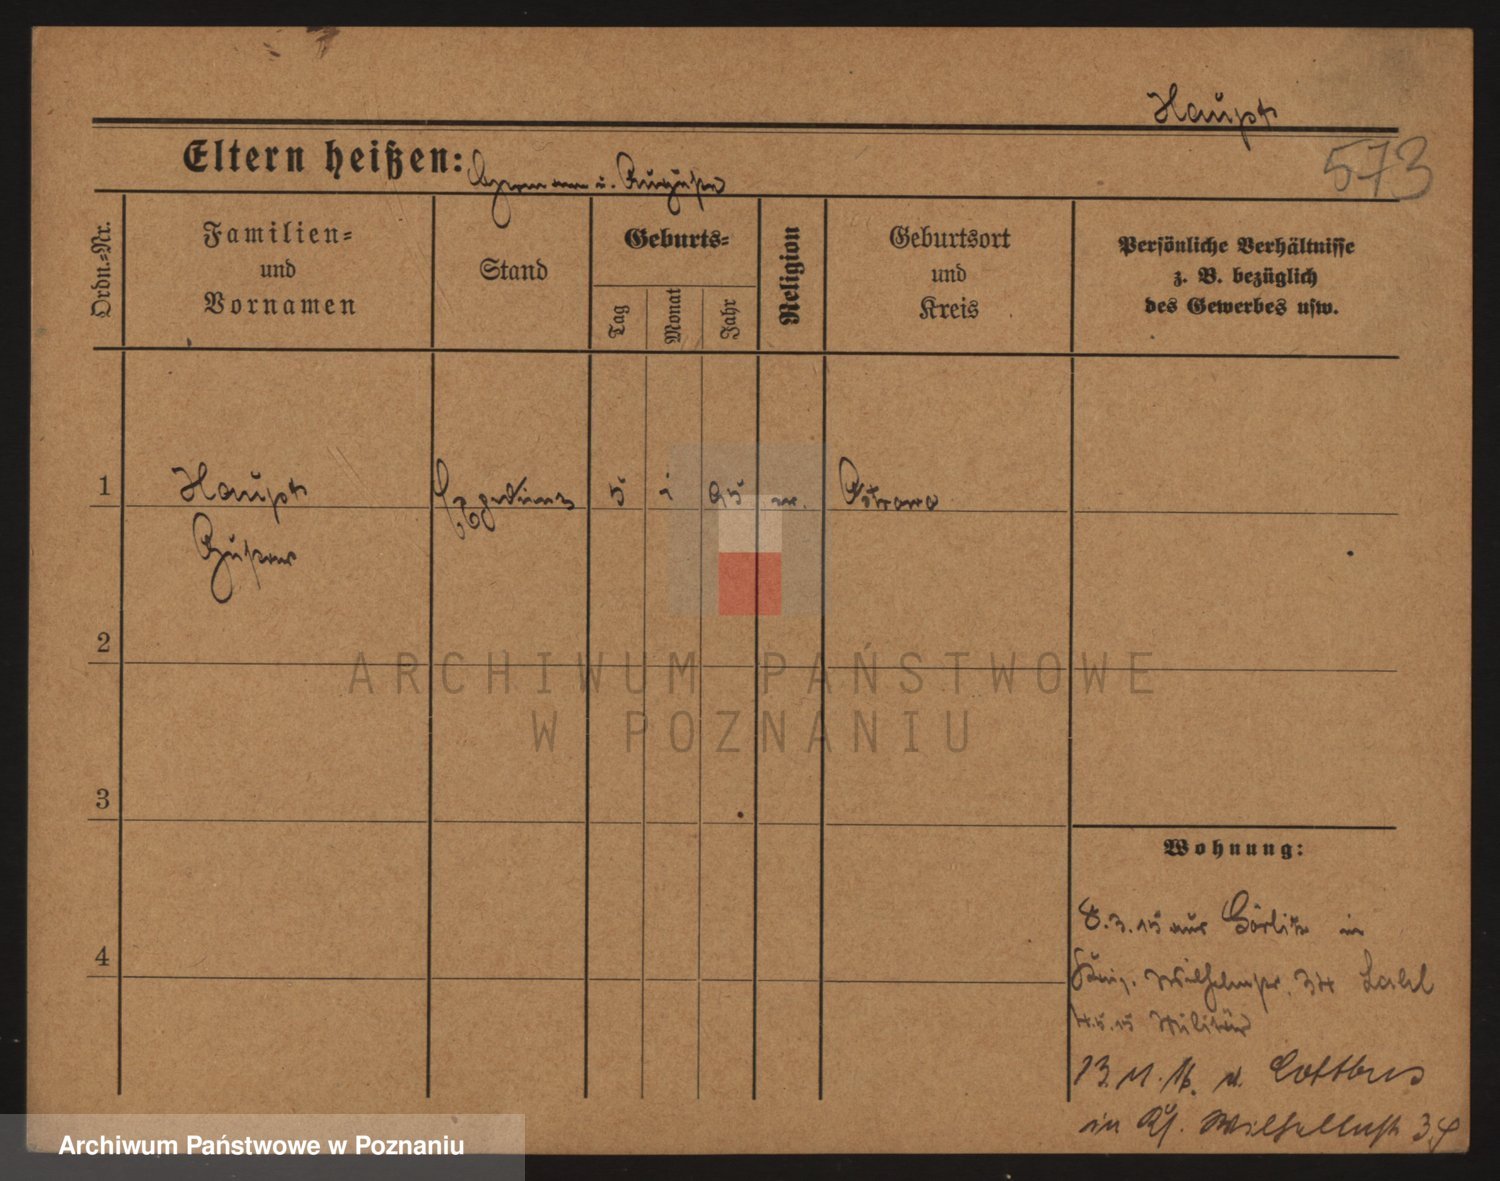 Haupt
573
Eltern heißen: Hermann u. Auguste
Ordn.-Nr.
Familien-
und
Vornamen
Stand
Geburts-
Tag
Monat
Jahr
Religion
Geburtsort
und
Kreis
Persönliche Verhältnisse
z. B. bezüglich
des Gewerbes usw.
1
Haupt
Gustav
5
1
95
Ostrowo
2
ARCHIWUM PAŃSTWOWE
W POZNANIU
3
Wohnung:
4
8.3.15 aus Görlitz in
Wilhelmstr. 34
4.5.15 Militär
13.11. Cottbus
in
Archiwum Państwowe w Poznaniu